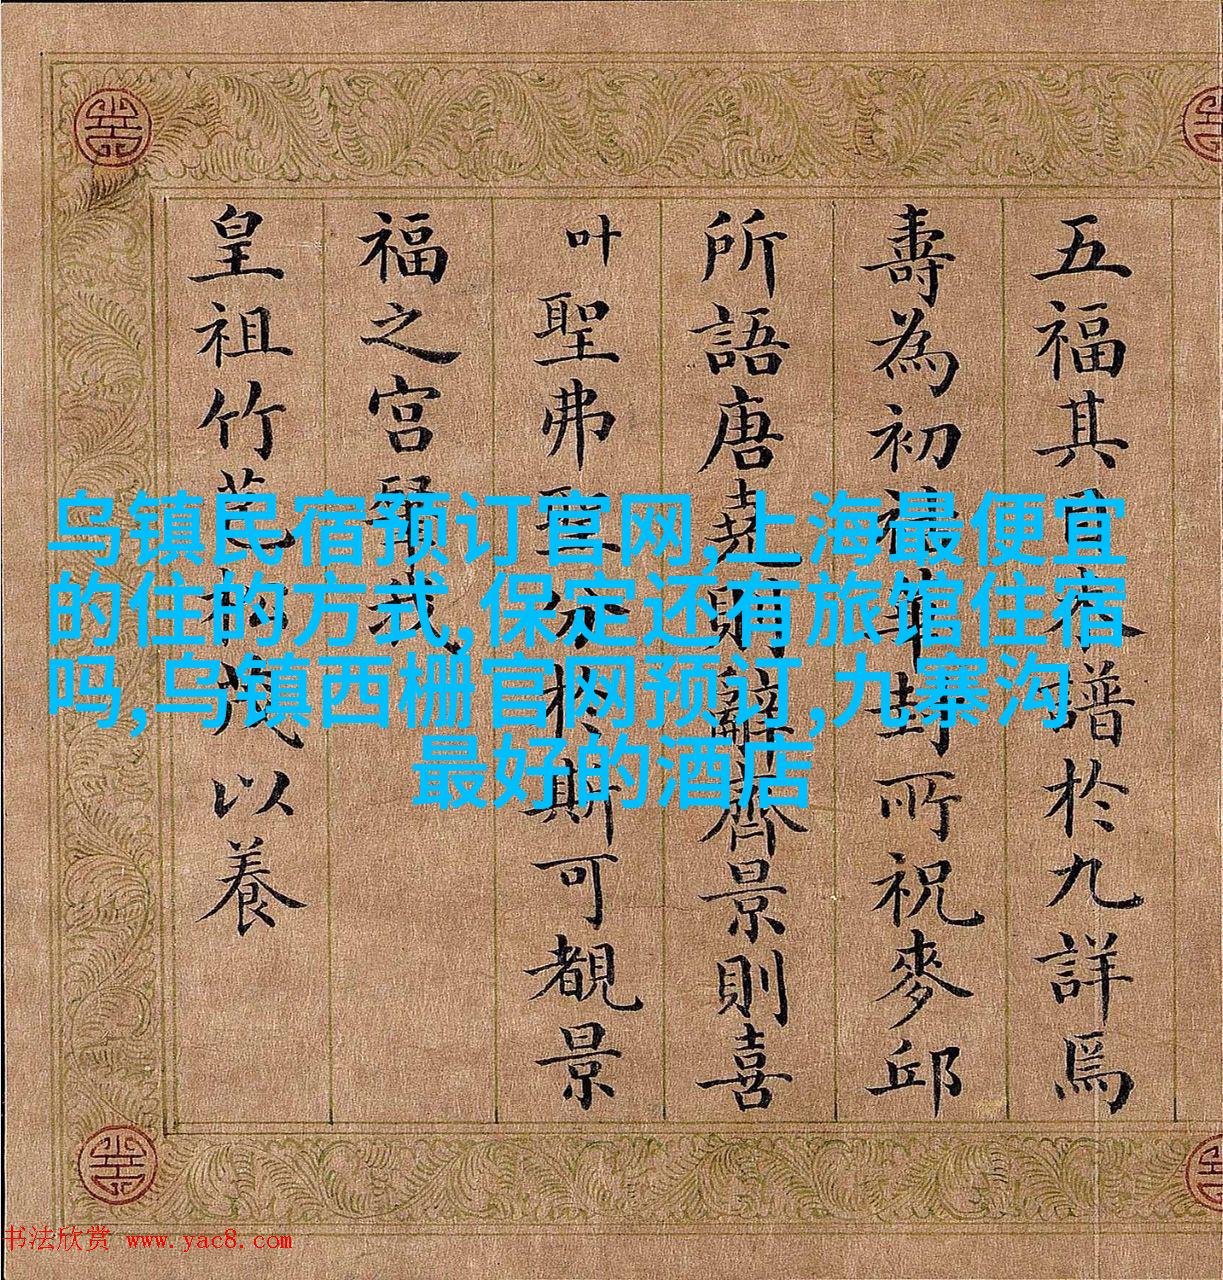 乌镇民宿预订官网,上海最便宜
的住的方式,保定还有旅馆住宿
吗,乌镇西栅官网预订,九寨沟
最好的酒店
五福其譜於九詳焉
壽為初華封所祝麥邱
所語唐堯則辭齊景則喜
叶聖弗聖分於斯可覩景
福之宮我
皇祖竹苞松茂以養
书法欣赏 www.yac8.com